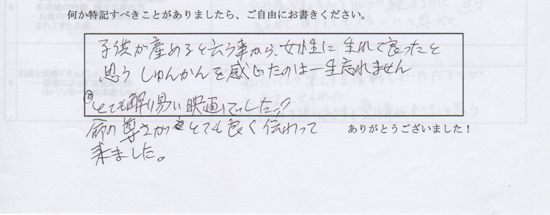 何か特記すべきことがありましたら、ご自由にお書きください。
子供が産めると云う事から、女性に生れて良ったと
思うしゅんかんを感じたのは一生忘れません
とても解り易い映画でした♪
命の尊さがとても良く伝わって
来ました。
ありがとうございました！